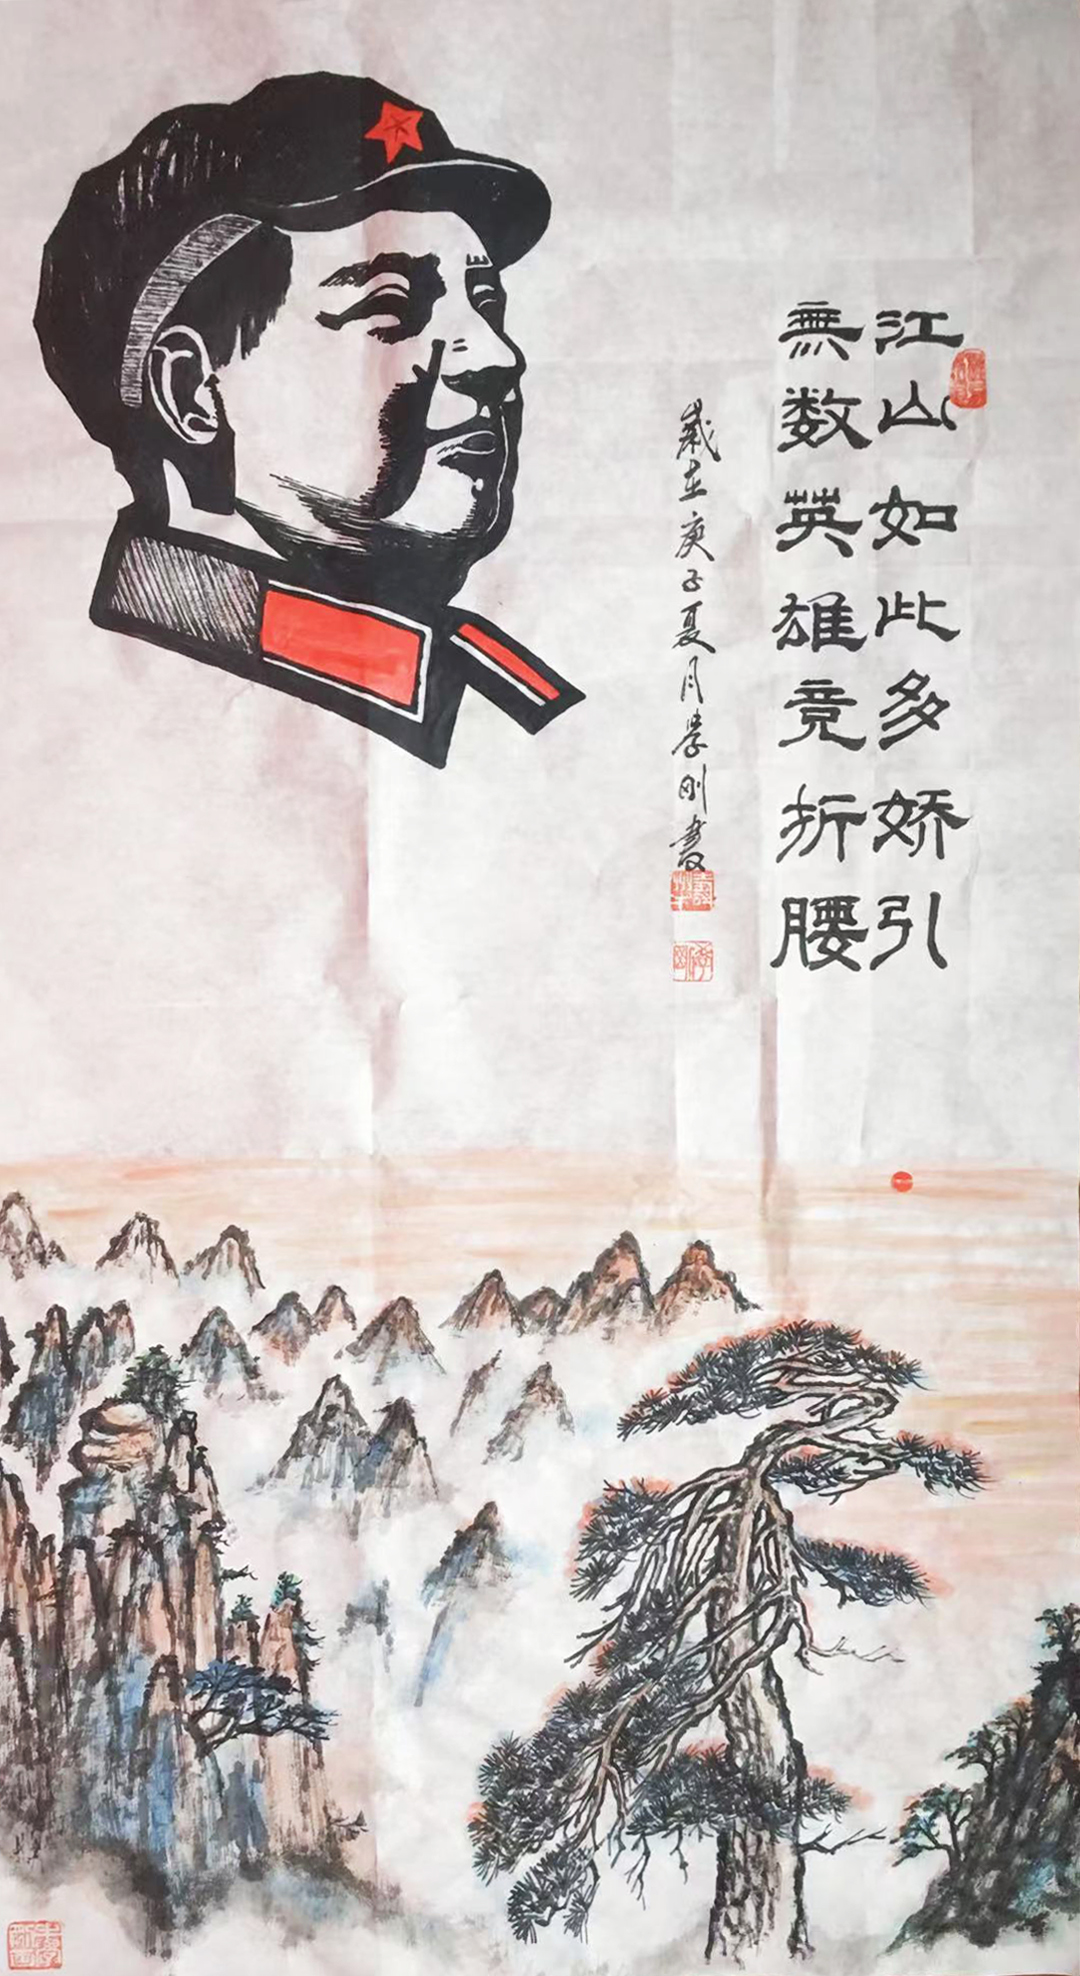 江山如此多娇引
無数英雄竞折腰
歲在庚子夏月孝刚書